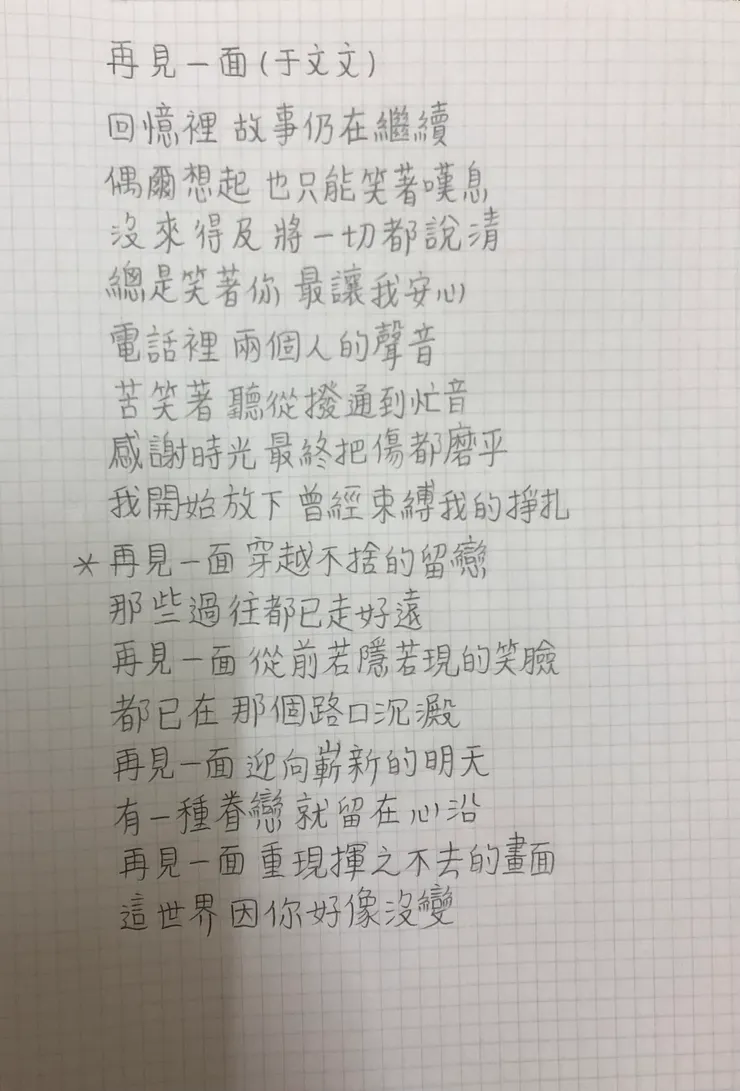 再見一面(于文文)
回憶裡 故事仍在繼續
偶爾想起 也只能笑著嘆息
沒來得及 將一切都說清
總是笑著你 最讓我安心
電話裡 兩個人的聲音
苦笑著 聽從撥通到忙音
感謝時光 最終把傷都磨平
我開始放下 曾經束縛我的掙扎
*再見一面 穿越不捨的留戀
那些過往都已走好遠
再見一面 從前若隱若現的笑臉
都已在 那個路口沉澱
再見一面 迎向嶄新的明天
有一種眷戀 就留在心沿
再見一面 重現揮之不去的畫面
這世界 因你好像沒變